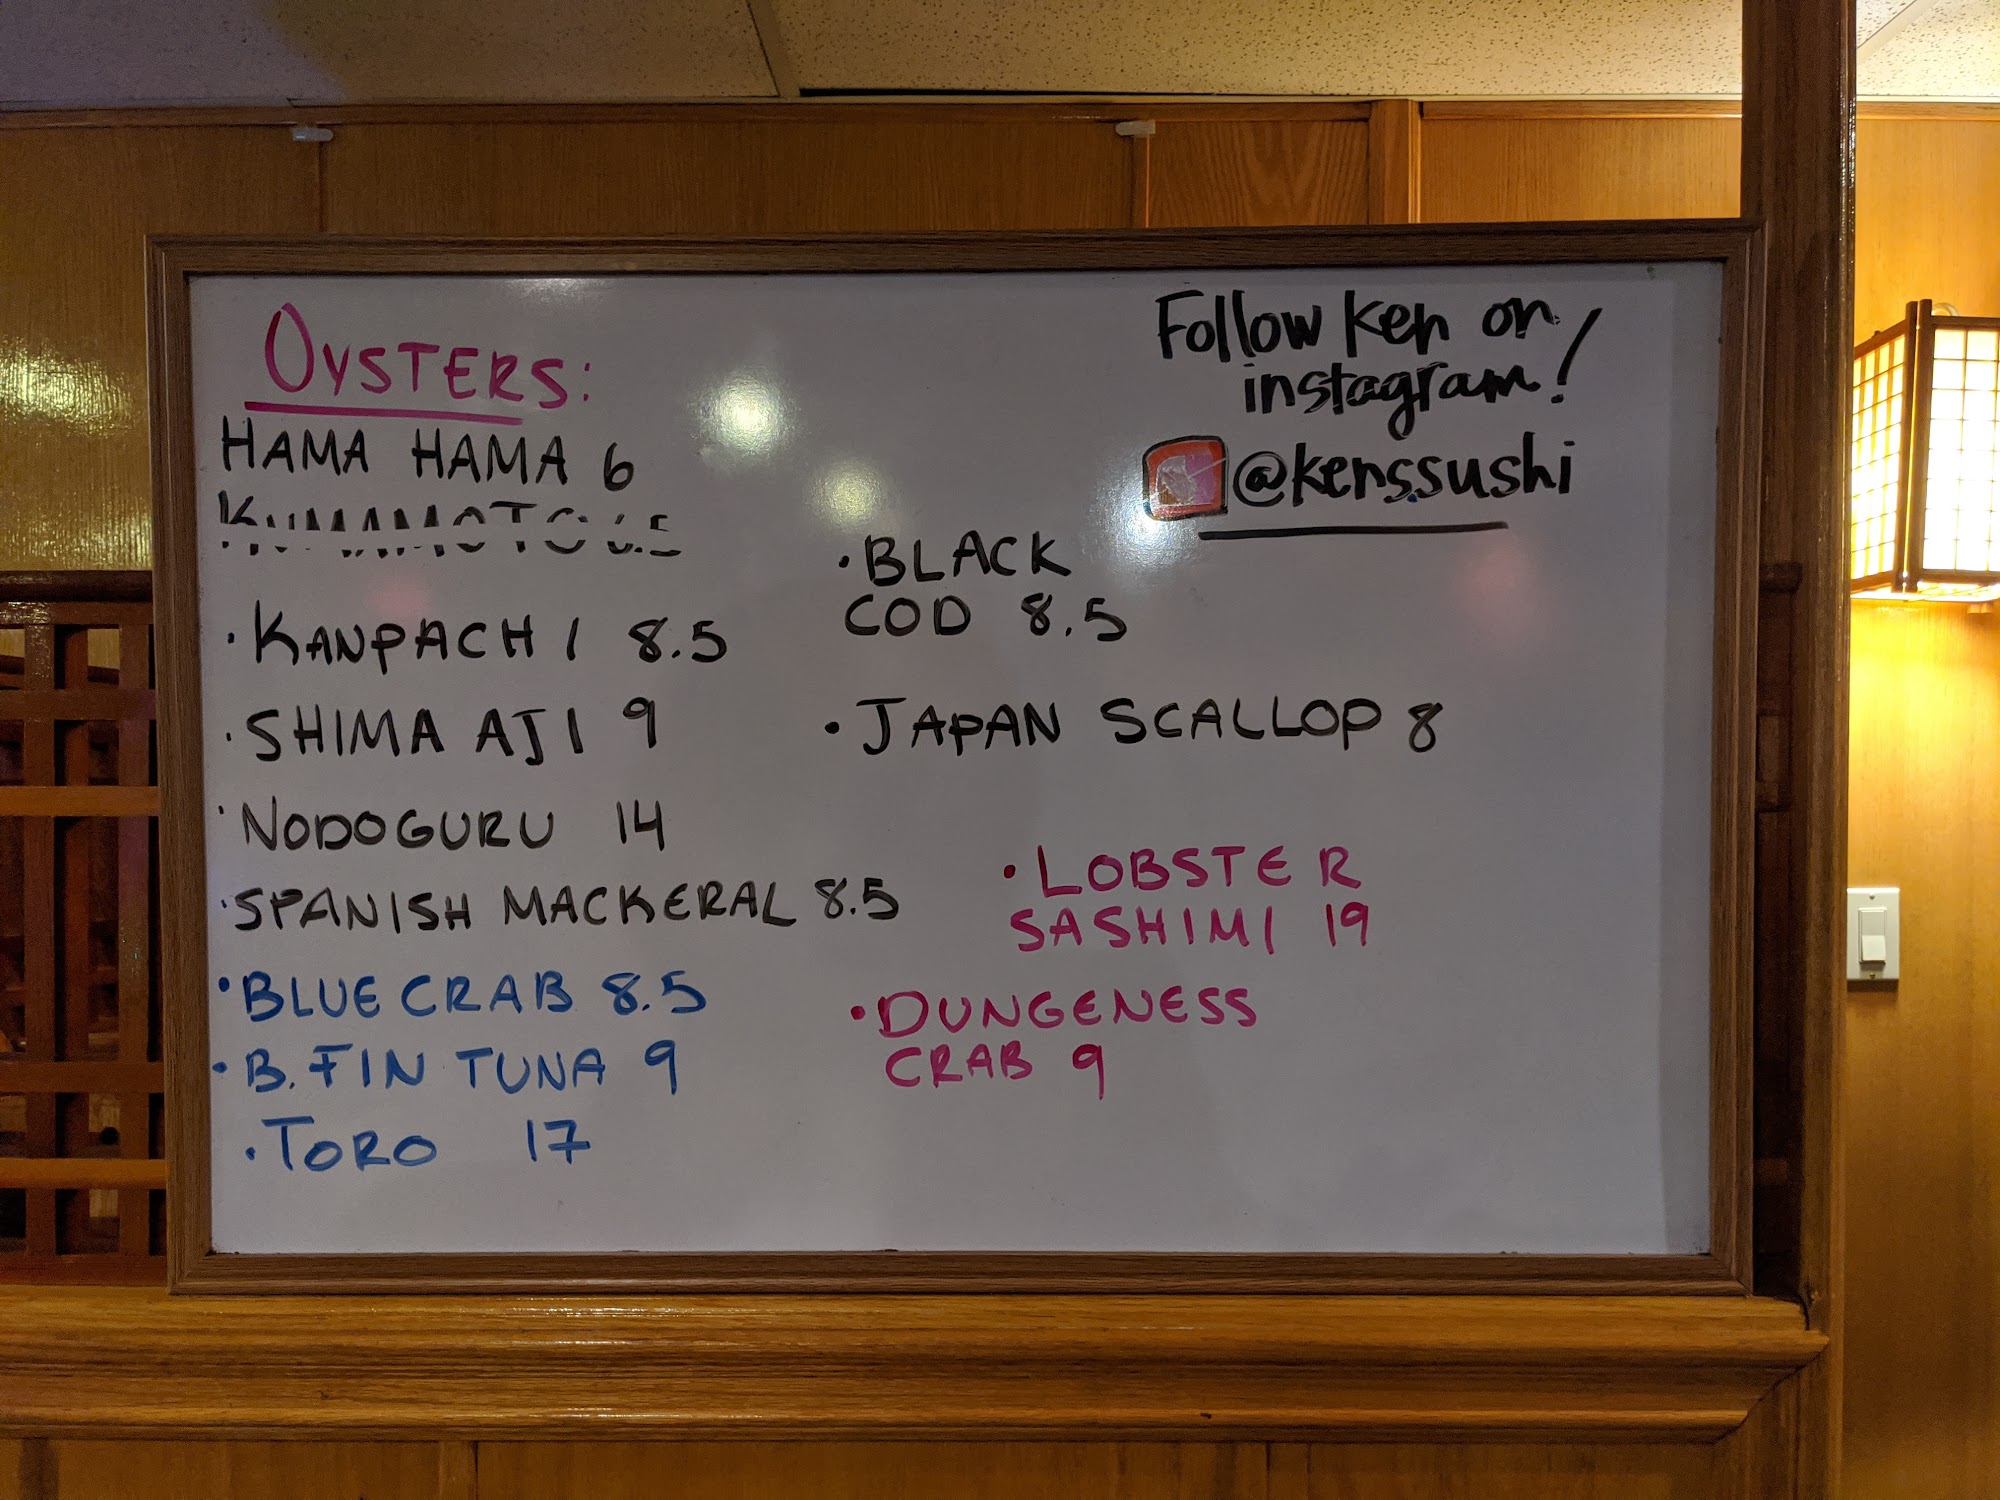 OYSTERS:
HAMA HAMA 6
KUMAMOTO 6.5
· KANPACHI 8.5
· SHIMA AJI 9
· NODOGURU 14
· SPANISH MACKERAL 8.5
· BLUE CRAB 8.5
· B. FIN TUNA 9
· TORO 17
Follow Ken on
instagram!
@kenssushi
· BLACK
COD 8.5
· JAPAN SCALLOP 8
· LOBSTER
SASHIMI 19
· DUNGENESS
CRAB 9